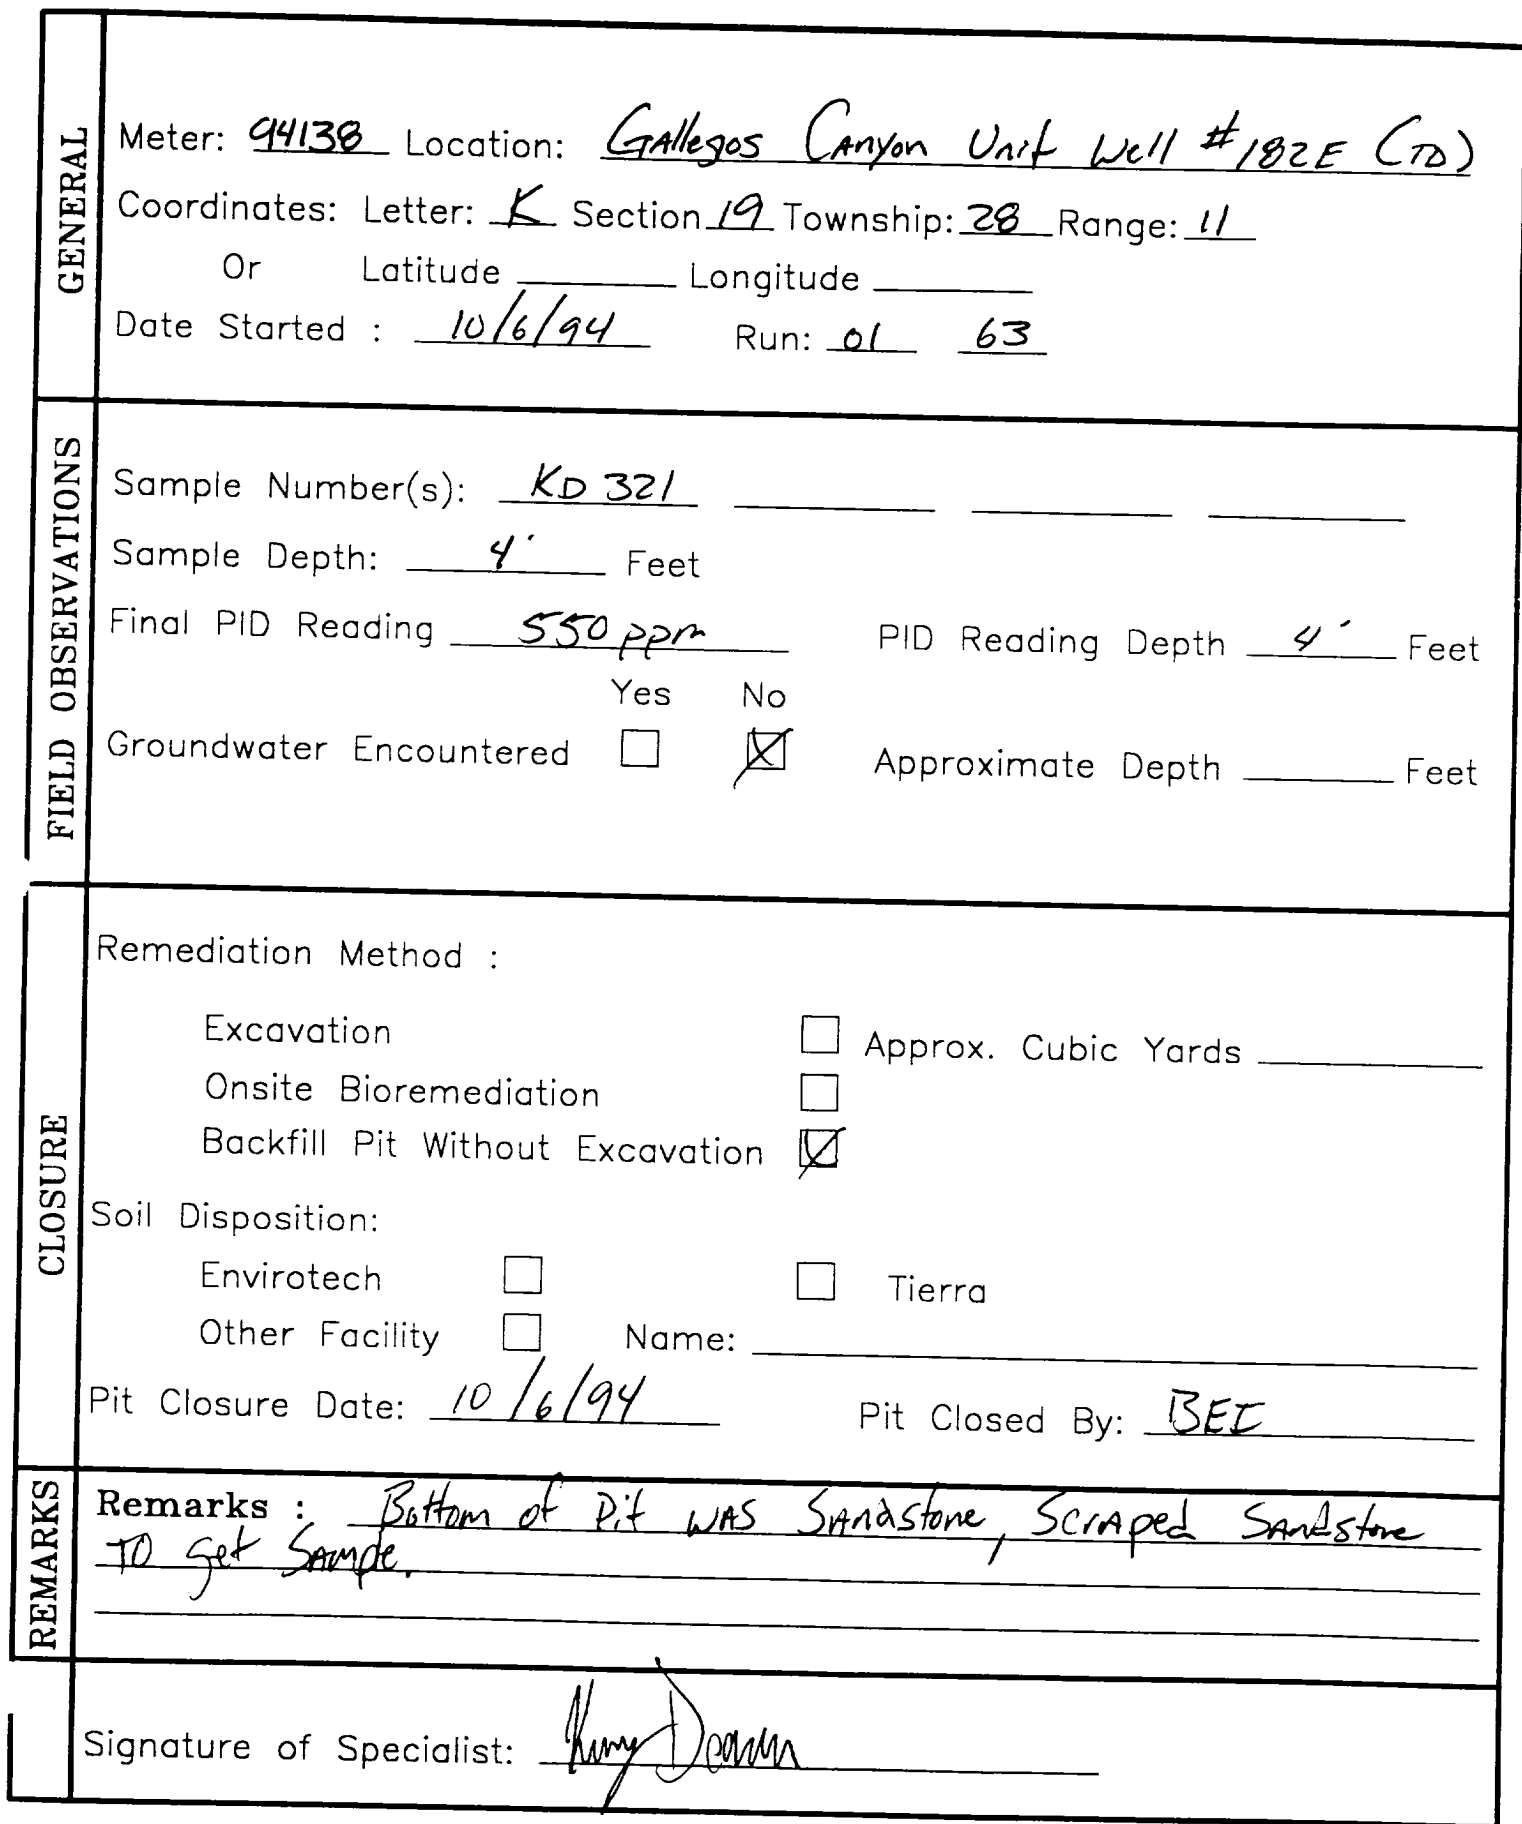 GENERAL
Meter: 94138 Location: Gallegos Canyon Unit Well #182E (TD)
Coordinates: Letter: K Section 19 Township: 28 Range: 11
Or Latitude Longitude
Date Started : 10/6/94 Run: 01 63
FIELD OBSERVATIONS
Sample Number(s): KD 321
Sample Depth: 4' Feet
Final PID Reading 550 ppm PID Reading Depth 4' Feet
Yes No
Groundwater Encountered Approximate Depth Feet
CLOSURE
Remediation Method :
Excavation Approx. Cubic Yards
Onsite Bioremediation
Backfill Pit Without Excavation
Soil Disposition:
Envirotech Tierra
Other Facility Name:
Pit Closure Date: 10/6/94 Pit Closed By: BEI
REMARKS
Remarks : Bottom of Pit was Sandstone, Scraped Sandstone
To get Sample.
Signature of Specialist: